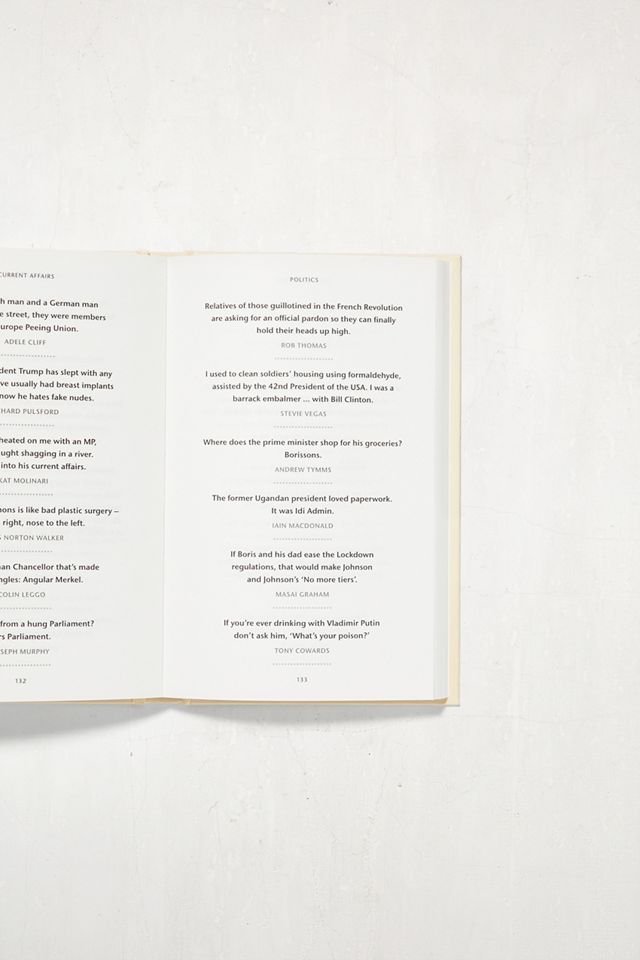 CURRENT AFFAIRS
h man and a German man
e street, they were members
urope Peeing Union.
ADELE CLIFF
dent Trump has slept with any
ve usually had breast implants
now he hates fake nudes.
HARD PULSFORD
heated on me with an MP,
ught shagging in a river.
into his current affairs.
KAT MOLINARI
ons is like bad plastic surgery –
right, nose to the left.
NORTON WALKER
an Chancellor that's made
ngles: Angular Merkel.
COLIN LEGGO
from a hung Parliament?
rs Parliament.
SEPH MURPHY
132
POLITICS
Relatives of those guillotined in the French Revolution
are asking for an official pardon so they can finally
hold their heads up high.
ROB THOMAS
I used to clean soldiers' housing using formaldehyde,
assisted by the 42nd President of the USA. I was a
barrack embalmer ... with Bill Clinton.
STEVIE VEGAS
Where does the prime minister shop for his groceries?
Borissons.
ANDREW TYMMS
The former Ugandan president loved paperwork.
It was Idi Admin.
IAIN MACDONALD
If Boris and his dad ease the Lockdown
regulations, that would make Johnson
and Johnson's 'No more tiers'.
MASAI GRAHAM
If you're ever drinking with Vladimir Putin
don't ask him, 'What's your poison?'
TONY COWARDS
133